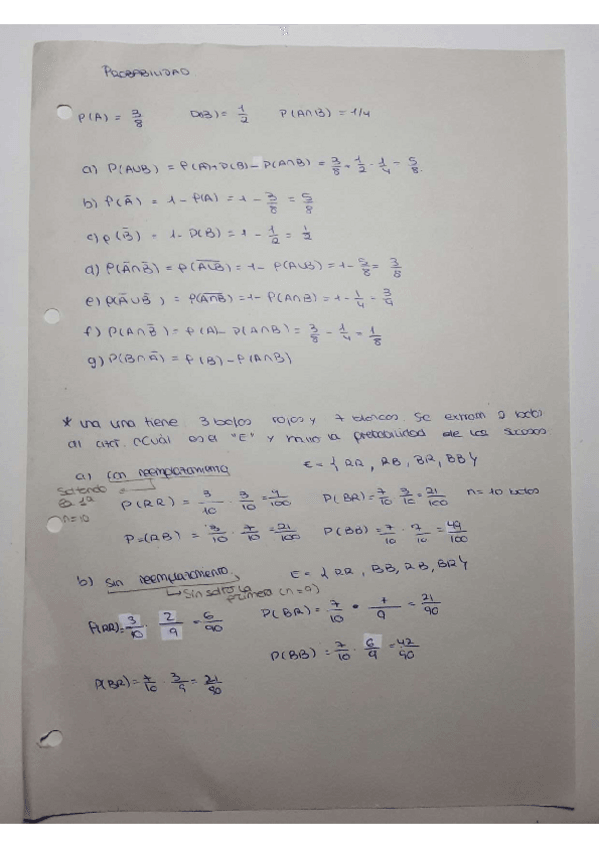 PROBABILIDAD
P(A) = 3/8 P(B) = 1/2 P(A∩B) = 1/4
a) P(A∪B) = P(A)+P(B)-P(A∩B) = 3/8 + 1/2 - 1/4 = 5/8.
b) P(Ā) = 1 - P(A) = 1 - 3/8 = 5/8
c) P(B̄) = 1 - P(B) = 1 - 1/2 = 1/2
d) P(Ā∩B̄) = P(A∪B)‾ = 1 - P(A∪B) = 1 - 5/8 = 3/8
e) P(Ā∪B̄) = P(A∩B)‾ = 1 - P(A∩B) = 1 - 1/4 = 3/4
f) P(A∩B̄) = P(A) - P(A∩B) = 3/8 - 1/4 = 1/8
g) P(B∩Ā) = P(B) - P(A∩B)
* una urna tiene 3 bolas rojas y 7 blancas se extraen 2 bolas
al azar. ¿Cuál es el "E" y la probabilidad de los sucesos
a) con reemplazamiento E = { RR, RB, BR, BB }
n=10
P(RR) = 3/10 · 3/10 = 9/100 P(BR) = 7/10 · 3/10 = 21/100 n = 10 bolas
P=(RB) = 3/10 · 7/10 = 21/100 P(BB) = 7/10 · 7/10 = 49/100
b) sin reemplazamiento. E = { RR, BB, RB, BR }
primera (n=9)
P(RR) = 3/10 · 2/9 = 6/90 P(BR) = 7/10 · /9 = 21/90
P(BB) = 7/10 · 6/9 = 42/90
P(BR) = 7/10 · 3/9 = 21/90